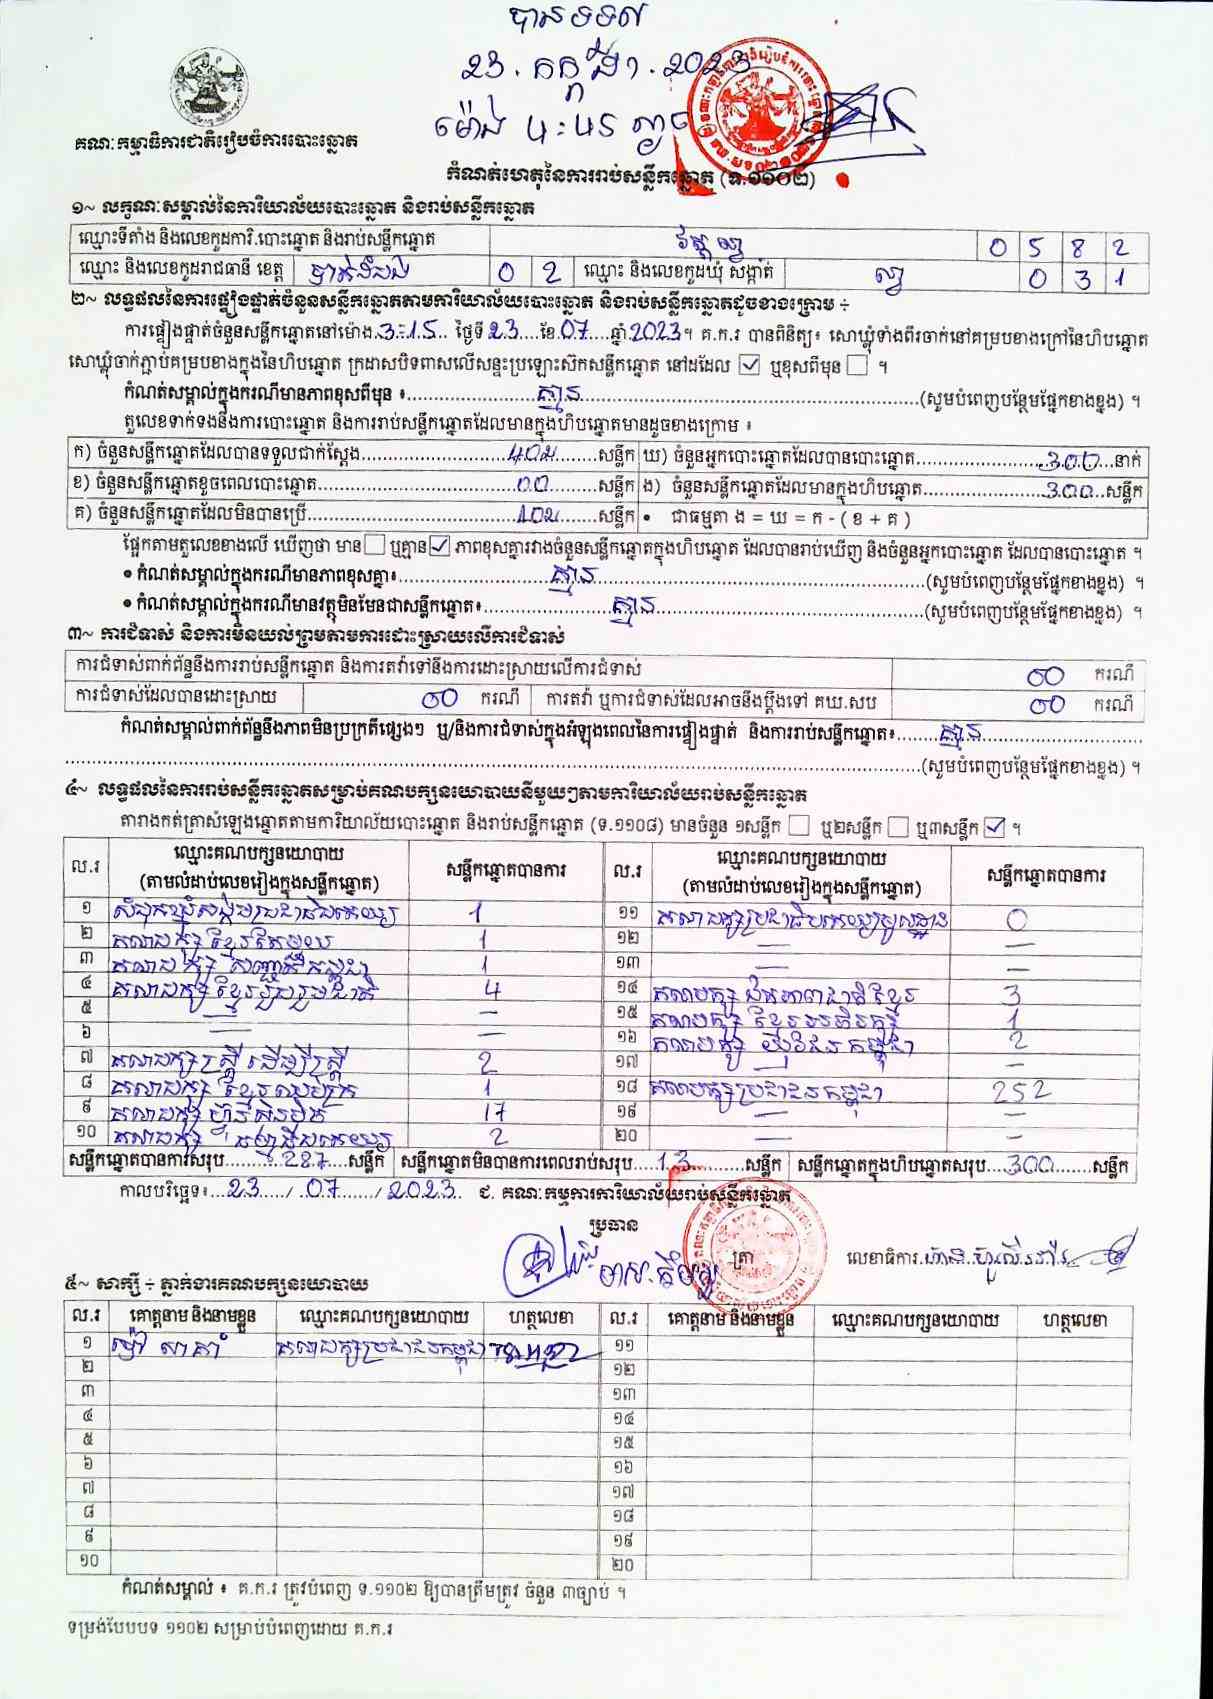 បានទទួល
23.កក្កដា.2023
ម៉ោង ៤:៤5 ល្ងាច
គណៈកម្មាធិការជាតិរៀបចំការបោះឆ្នោត
កំណត់ហេតុនៃការរាប់សន្លឹកឆ្នោត (ទ.១១០២)
១~ លក្ខណៈសម្គាល់នៃការិយាល័យបោះឆ្នោត និងរាប់សន្លឹកឆ្នោត
ឈ្មោះទីតាំង និងលេខកូដការិ.បោះឆ្នោត និងរាប់សន្លឹកឆ្នោត វត្តល្វា 0 5 8 2
ឈ្មោះ និងលេខកូដរាជធានី ខេត្ត បាត់ដំបង 0 2 ឈ្មោះ និងលេខកូដឃុំ សង្កាត់ ល្វា 0 3 1
២~ លទ្ធផលនៃការផ្ទៀងផ្ទាត់ចំនួនសន្លឹកឆ្នោតតាមការិយាល័យបោះឆ្នោត និងរាប់សន្លឹកឆ្នោតដូចខាងក្រោម ÷
ការផ្ទៀងផ្ទាត់ចំនួនសន្លឹកឆ្នោតនៅម៉ោង.3:15.. ថ្ងៃទី23....ខែ.07.....ឆ្នាំ.2023។ គ.ក.រ បានពិនិត្យ៖ សោឃ្លុំទាំងពីរចាក់នៅគម្របខាងក្រៅនៃហិបឆ្នោត
សោឃ្លុំចាក់ភ្ជាប់គម្របខាងក្នុងនៃហិបឆ្នោត ក្រដាសបិទពាសលើសន្ទះប្រឡោះស៊កសន្លឹកឆ្នោត នៅដដែល ☑ ឬខុសពីមុន ☐ ។
កំណត់សម្គាល់ក្នុងករណីមានភាពខុសពីមុន ៖ គ្មាន (សូមបំពេញបន្ថែមផ្នែកខាងខ្នង) ។
តួលេខទាក់ទងនឹងការបោះឆ្នោត និងការរាប់សន្លឹកឆ្នោតដែលមានក្នុងហិបឆ្នោតមានដូចខាងក្រោម ៖
ក) ចំនួនសន្លឹកឆ្នោតដែលបានទទួលជាក់ស្តែង 402 សន្លឹក ឃ) ចំនួនអ្នកបោះឆ្នោតដែលបានបោះឆ្នោត 300 នាក់
ខ) ចំនួនសន្លឹកឆ្នោតខូចពេលបោះឆ្នោត 00 សន្លឹក ង) ចំនួនសន្លឹកឆ្នោតដែលមានក្នុងហិបឆ្នោត 300 សន្លឹក
គ) ចំនួនសន្លឹកឆ្នោតដែលមិនបានប្រើ 102 សន្លឹក • ជាធម្មតា ង = ឃ = ក - ( ខ + គ )
ផ្អែកតាមតួលេខខាងលើ ឃើញថា មាន ☐ ឬគ្មាន ☑ ភាពខុសគ្នារវាងចំនួនសន្លឹកឆ្នោតក្នុងហិបឆ្នោត ដែលបានរាប់ឃើញ និងចំនួនអ្នកបោះឆ្នោត ដែលបានបោះឆ្នោត ។
• កំណត់សម្គាល់ក្នុងករណីមានភាពខុសគ្នា៖ គ្មាន (សូមបំពេញបន្ថែមផ្នែកខាងខ្នង) ។
• កំណត់សម្គាល់ក្នុងករណីមានវត្ថុមិនមែនជាសន្លឹកឆ្នោត៖ គ្មាន (សូមបំពេញបន្ថែមផ្នែកខាងខ្នង) ។
៣~ ការជំទាស់ និងការមិនយល់ព្រមតាមការដោះស្រាយលើការជំទាស់
ការជំទាស់ពាក់ព័ន្ធនឹងការរាប់សន្លឹកឆ្នោត និងការតវ៉ាទៅនឹងការដោះស្រាយលើការជំទាស់ 00 ករណី
ការជំទាស់ដែលបានដោះស្រាយ 00 ករណី ការតវ៉ា ឬការជំទាស់ដែលអាចនឹងប្តឹងទៅ គឃ.សប 00 ករណី
កំណត់សម្គាល់ពាក់ព័ន្ធនឹងភាពមិនប្រក្រតីផ្សេងៗ ឬ/និងការជំទាស់ក្នុងអំឡុងពេលនៃការផ្ទៀងផ្ទាត់ និងការរាប់សន្លឹកឆ្នោត៖ គ្មាន
(សូមបំពេញបន្ថែមផ្នែកខាងខ្នង) ។
៤~ លទ្ធផលនៃការរាប់សន្លឹកឆ្នោតសម្រាប់គណបក្សនយោបាយនីមួយៗតាមការិយាល័យរាប់សន្លឹកឆ្នោត
តារាងកត់ត្រាសំឡេងឆ្នោតតាមការិយាល័យបោះឆ្នោត និងរាប់សន្លឹកឆ្នោត (ទ.១១០៨) មានចំនួន ១សន្លឹក ☐ ឬ២សន្លឹក ☐ ឬ៣សន្លឹក ☑ ។
ល.រ ឈ្មោះគណបក្សនយោបាយ (តាមលំដាប់លេខរៀងក្នុងសន្លឹកឆ្នោត) សន្លឹកឆ្នោតបានការ ល.រ ឈ្មោះគណបក្សនយោបាយ (តាមលំដាប់លេខរៀងក្នុងសន្លឹកឆ្នោត) សន្លឹកឆ្នោតបានការ
១ សំបុកឃ្មុំសង្គមប្រជាធិបតេយ្យ 1 ១១ គណបក្សប្រជាធិបតេយ្យមូលដ្ឋាន 0
២ គណបក្ស ខ្មែរតែមួយ 1 ១២ — —
៣ គណបក្ស កម្ពុជា 1 ១៣ — —
៤ គណបក្ស ខ្មែររួបរួមជាតិ 4 ១៤ គណបក្ស ឯកភាពជាតិខ្មែរ 3
៥ — — ១៥ គណបក្ស ខ្មែរអភិរក្ស 1
៦ — — ១៦ គណបក្ស យុវជនកម្ពុជា 2
៧ គណបក្ស ស្ត្រី ដើម្បីស្ត្រី 2 ១៧ — —
៨ គណបក្ស ខ្មែរឈប់ក្រ 1 ១៨ គណបក្សប្រជាជនកម្ពុជា 252
៩ គណបក្ស ហ៊្វុនស៊ិនប៉ិច 17 ១៩ — —
១០ គណបក្ស ធម្មាធិបតេយ្យ 2 ២០ — —
សន្លឹកឆ្នោតបានការសរុប 287 សន្លឹក សន្លឹកឆ្នោតមិនបានការពេលរាប់សរុប 13 សន្លឹក សន្លឹកឆ្នោតក្នុងហិបឆ្នោតសរុប 300 សន្លឹក
កាលបរិច្ឆេទ៖ 23 / 07 / 2023 ជ. គណៈកម្មការការិយាល័យរាប់សន្លឹកឆ្នោត
ប្រធាន
ត្រា
លេខាធិការ
៥~ សាក្សី ÷ ភ្នាក់ងារគណបក្សនយោបាយ
ល.រ គោត្តនាម និងនាមខ្លួន ឈ្មោះគណបក្សនយោបាយ ហត្ថលេខា ល.រ គោត្តនាម និងនាមខ្លួន ឈ្មោះគណបក្សនយោបាយ ហត្ថលេខា
១ គណបក្សប្រជាជនកម្ពុជា ១១
២ ១២
៣ ១៣
៤ ១៤
៥ ១៥
៦ ១៦
៧ ១៧
៨ ១៨
៩ ១៩
១០ ២០
កំណត់សម្គាល់ ៖ គ.ក.រ ត្រូវបំពេញ ទ.១១០២ ឱ្យបានត្រឹមត្រូវ ចំនួន ៣ច្បាប់ ។
ទម្រង់បែបបទ ១១០២ សម្រាប់បំពេញដោយ គ.ក.រ